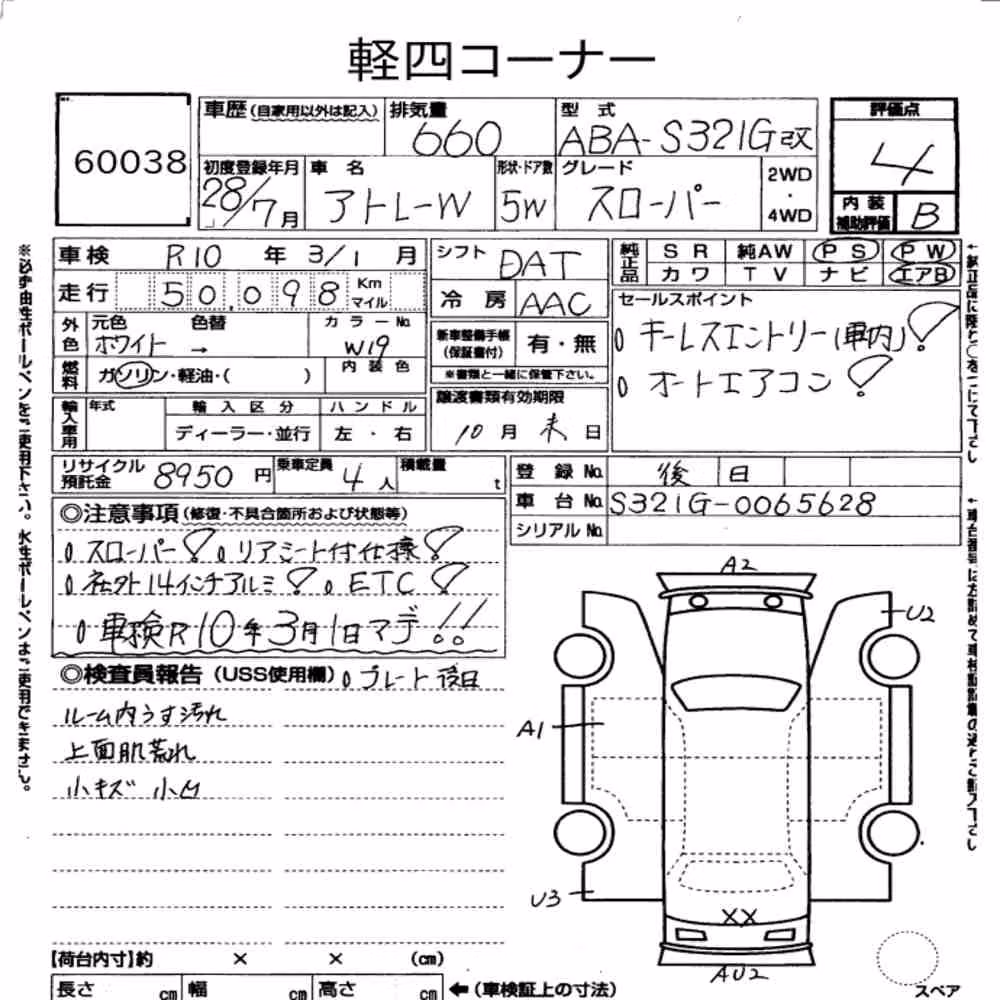 軽四コーナー
60038
車歴(自家用以外は記入) 排気量 660 型式 ABA-S321G改 評価点 4
初度登録年月 28/7月 車名 アトレーW 形状・ドア数 5W グレード スローパー 2WD・4WD 内装補助評価 B
車検 R10年 3/1月 シフト DAT 純正品 SR 純AW PS PW
カワ TV ナビ エアB
走行 50.098 Km マイル 冷房 AAC
セールスポイント
外色 元色 ホワイト 色替 → カラーNo. W19 新車整備手帳(保証書付) 有・無
キーレスエントリー(車内)!
燃料 ガソリン・軽油・( ) 内装色 ※書類と一緒に保管下さい。
オートエアコン!
輸入車用 年式 輸入区分 ハンドル 譲渡書類有効期限
ディーラー・並行 左・右 10月末日
リサイクル預託金 8950円 乗車定員 4人 積載量 t 登録No. 後日
車台No. S321G-0065628
シリアルNo.
◎注意事項(修復・不具合箇所および状態等)
スローパー! リアシート付仕様!
社外14インチアルミ! ETC!
車検R10年3月1日マデ!!
◎検査員報告(USS使用欄) プレート後日
ルーム内うす汚れ
上面肌荒れ
小キズ 小凹
A2
U2
A1
U3
XX
AU2
【荷台内寸】約 × × (cm)
長さ cm 幅 cm 高さ cm ←(車検証上の寸法)
スペア
※必ず油性ボールペンをご使用下さい。水性ボールペンはご使用できません。